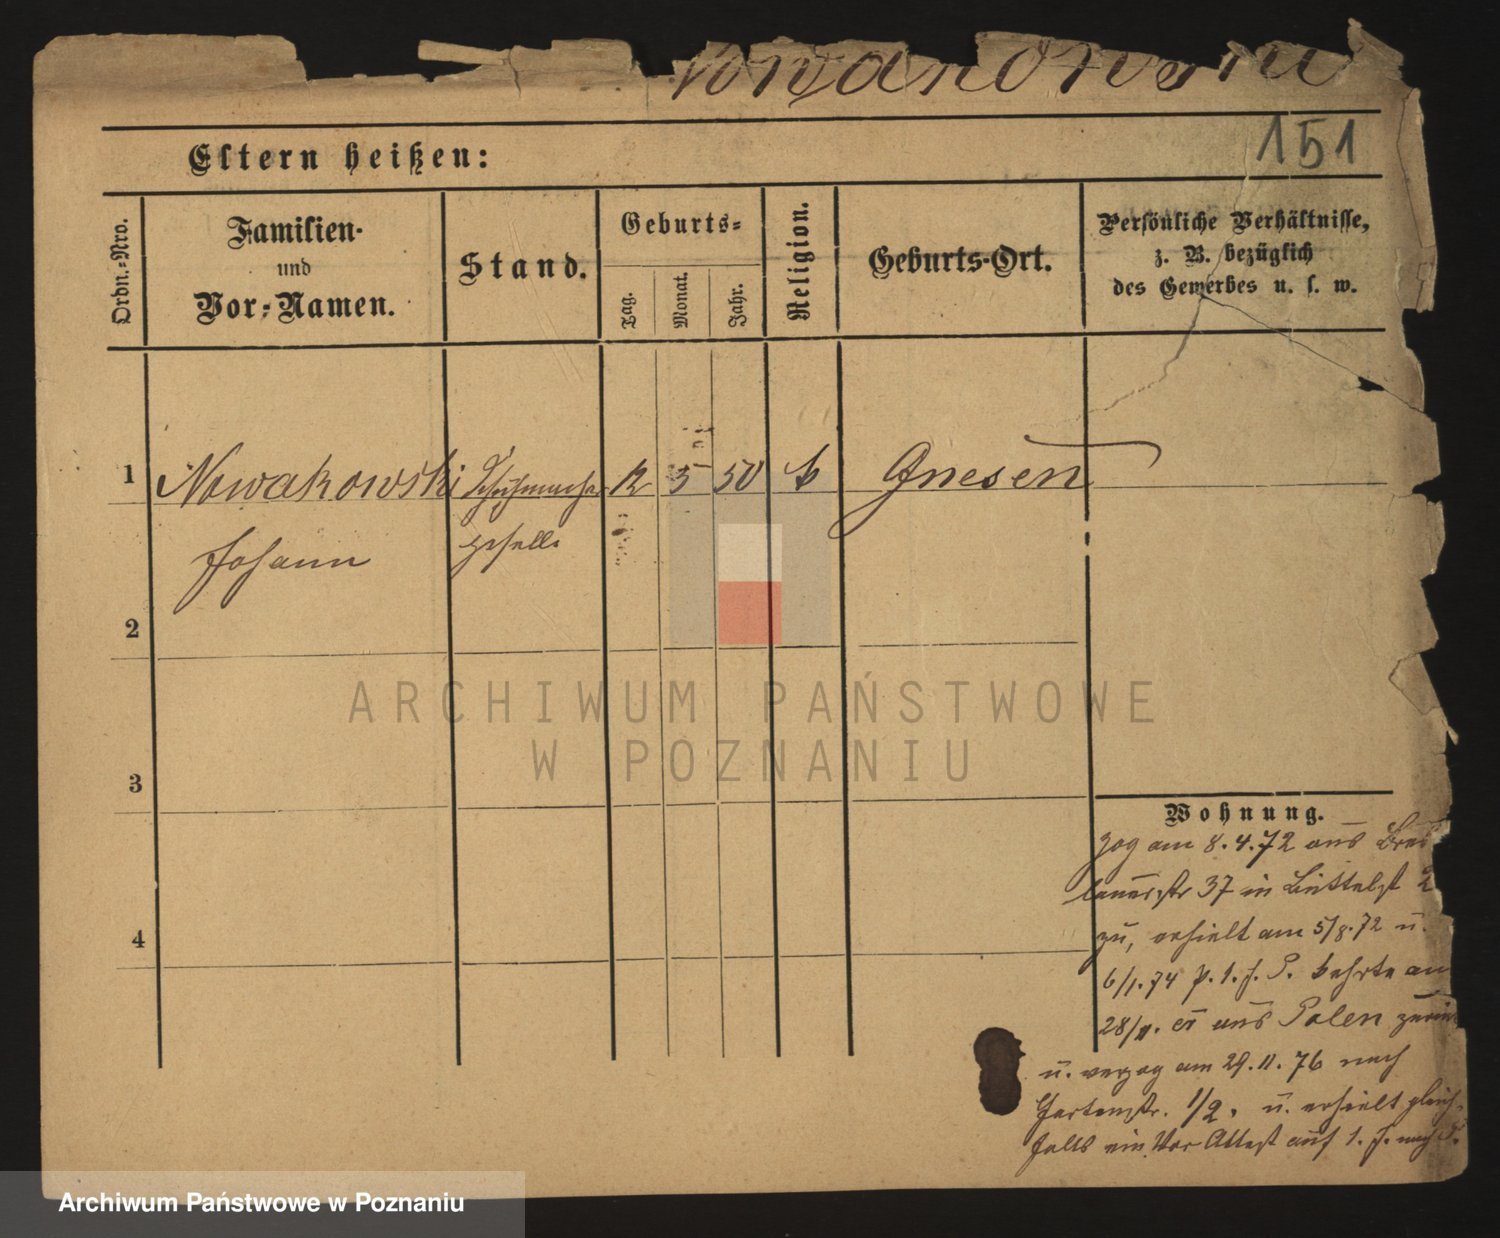 Nowakowski
151
Eltern heißen:
Ordn.-Nro.
Familien-
und
Vor-Namen.
Stand.
Geburts-
Tag.
Monat.
Jahr.
Religion.
Geburts-Ort.
Persönliche Verhältnisse,
z. B. bezüglich
des Gewerbes u. s. w.
1 Nowakowski Schuhmacher 12 5 50 k Gnesen
Johann geselle
2
3
4
ARCHIWUM PAŃSTWOWE
W POZNANIU
Wohnung.
zog am 8.4.72 aus Bres
lauerstr 37 in Büttelst 2
zu, erhielt am 5/8.72 u.
6/1.74 p. 1. J. P. kehrte am
28/11. er aus Polen zurück
u. verzog am 29.11.76 nach
Gartenstr. 1/2, u. erhielt gleich-
falls ein Attest auf 1. J. nach P.
Archiwum Państwowe w Poznaniu